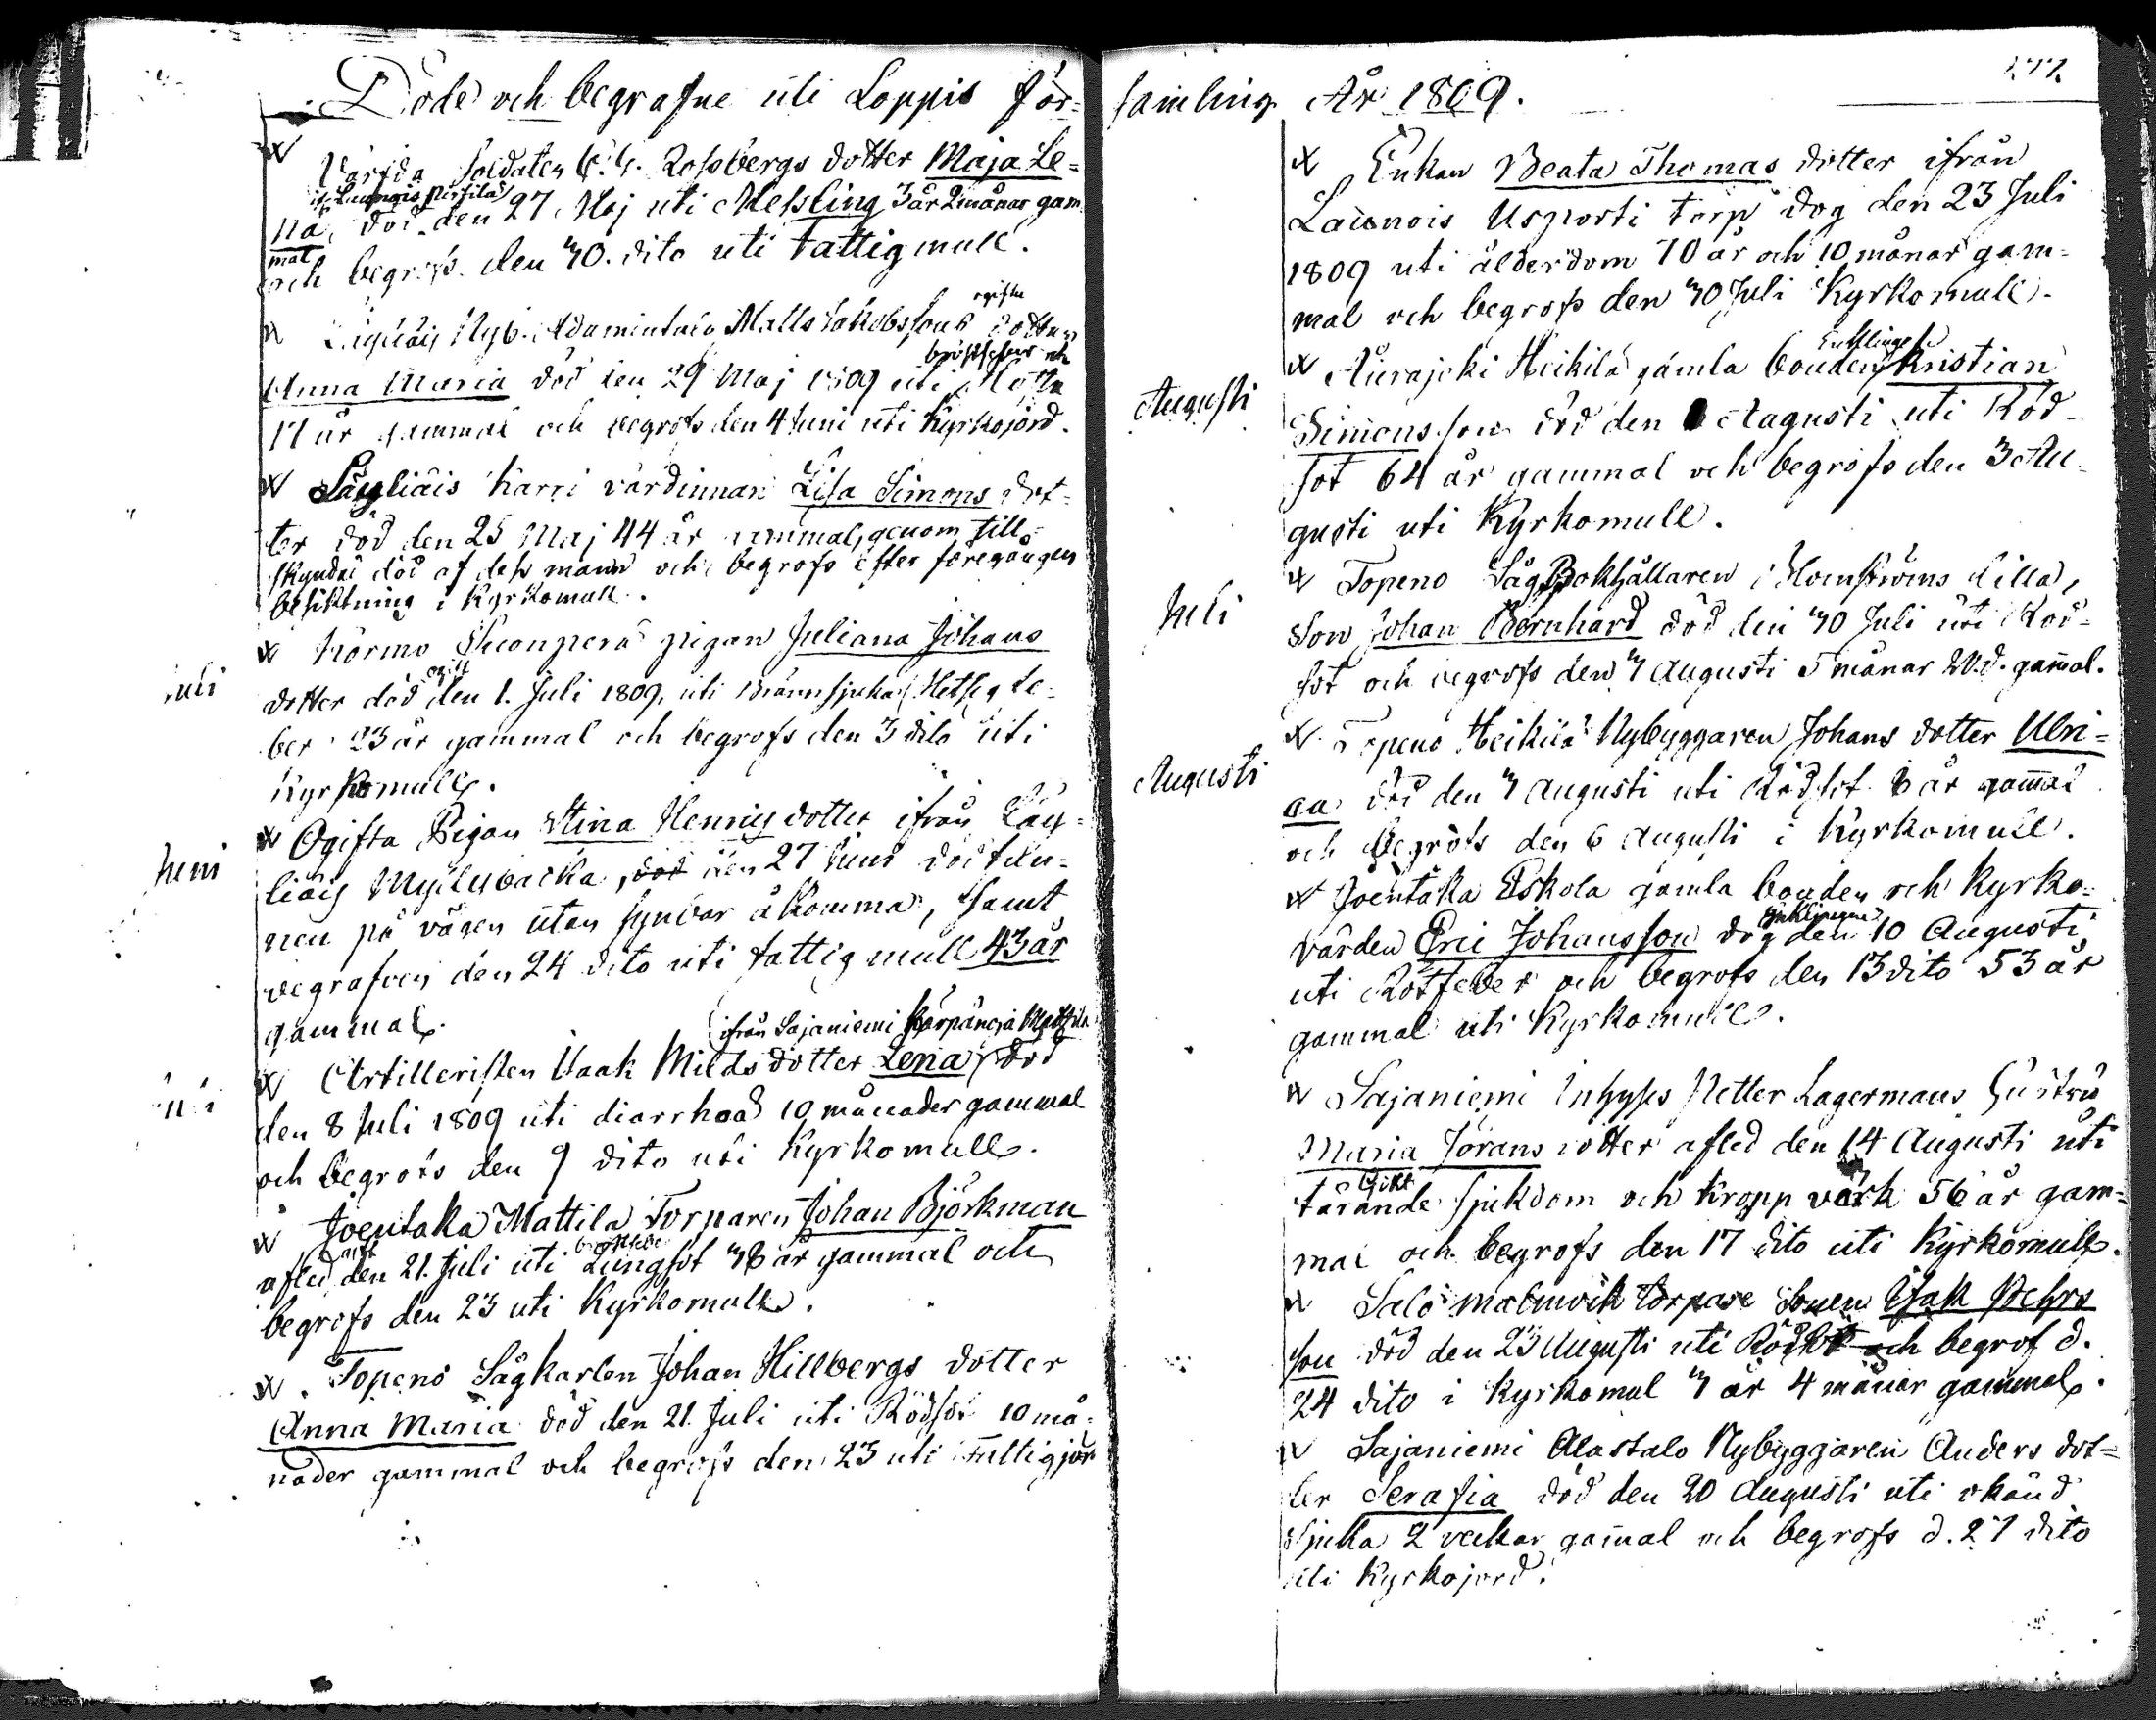 Döde och begrafne uti Loppis för-
Värfda Soldaten C. G. Rossbergs dotter Maja Le=
if. Launois Pirtilä
na, död den 27 Maj uti Messling 3 år 2 månar gam
mal
och begrofs den 30. dito uti fattig mull.
ogifta
Nyb. Matts Jakobssons dotter
bröstfeber och
Anna Maria död den 29 Maj 1809 uti
17 år gammal och begrofs den 4 Juni uti Kyrkojord.
Läyliäis Karri värdinnan Lisa Simons dot=
ter död den 25 Maj 44 år gammal, genom till=
skyndad död af dess man och begrofs efter föregången
besiktning i Kyrkomull.
Juli
Kormo pigan Juliana Johans
ogift
dotter död den 1. Juli 1809, uti Brännsjuka (Hetsig fe=
ber 23 år gammal och begrofs den 3 dito uti
Kyrkomull.
Ogifta Pigan Stina Henrigsdotter ifrån Läy=
Juni
liäis Myllybacka, död den 27 Juni död fun=
nen på vägen utan synbar åkomma, samt
begrafven den 24 dito uti fattig mull 43 år
gammal.
(ifrån Sajaniemi Mattila
Artilleristen Isaak Milds dotter Lena, död
den 8 Juli 1809 uti diarrhoa 10 månader gammal
och begrofs den 9 dito uti Kyrkomull.
Joentaka Mattila Torparen Johan Björkman
gift
afled den 21. Juli uti Lungsot 38 år gammal och
begrofs den 23 uti Kyrkomull.
Topeno Sågkarlen Johan Hillbergs dotter
Anna Maria död den 21 Juli uti Rödsot 10 må=
nader gammal och begrofs den 23 uti Fattigjor
samling År 1809.
Enkan Beata Thomas dotter ifrån
Launois Usporti torp dog den 23 Juli
1809 uti ålderdom 70 år och 10 månar gam=
mal och begrofs den 30 Juli Kyrkomull.
Enklingen
Aurajoki Heikilä gamla bonden Kristian
Augusti
Simonsson död den Augusti uti Röd=
sot 64 år gammal och begrofs den 3 Au=
gusti uti Kyrkomull.
Topeno Såg Bokhållaren Holmströms lilla,
Juli
Son Johan Bernhard död den 30 Juli uti Röd=
sot och begrofs den 3 Augusti 5 månar 20. d. gamal.
Topeno Heikilä Nybyggaren Johans dotter Ulri=
Augusti
ca död den 3 Augusti uti Rödsot 6 år gamal
och begrofs den 6 Augusti i Kyrkomull.
Joentaka Eskola gamla bonden och Kyrko=
Enklingen
värden Eric Johansson dog den 10 Augusti
uti Rötfeber och begrofs den 13 dito 53 år
gammal uti Kyrkomull.
Sajaniemi Inhyses Petter Lagermans hustru
Maria Jörans dotter afled den 14 Augusti uti
Gikt
tärande sjukdom och kropp värk 56 år gam=
mal och begrofs den 17 dito uti Kyrkomull.
Salo Malmvik torpare Sonen Isak Pehrs
son död den 23 Augusti uti Rödsot och begrof d.
24 dito i Kyrkomul 3 år 4 månar gammal.
Sajaniemi Alastalo Nybyggaren Anders dot=
ter Serafia död den 20 Augusti uti okänd
Sjuka 2 veckar gamal och begrofs d. 27 dito
uti Kyrkojord.